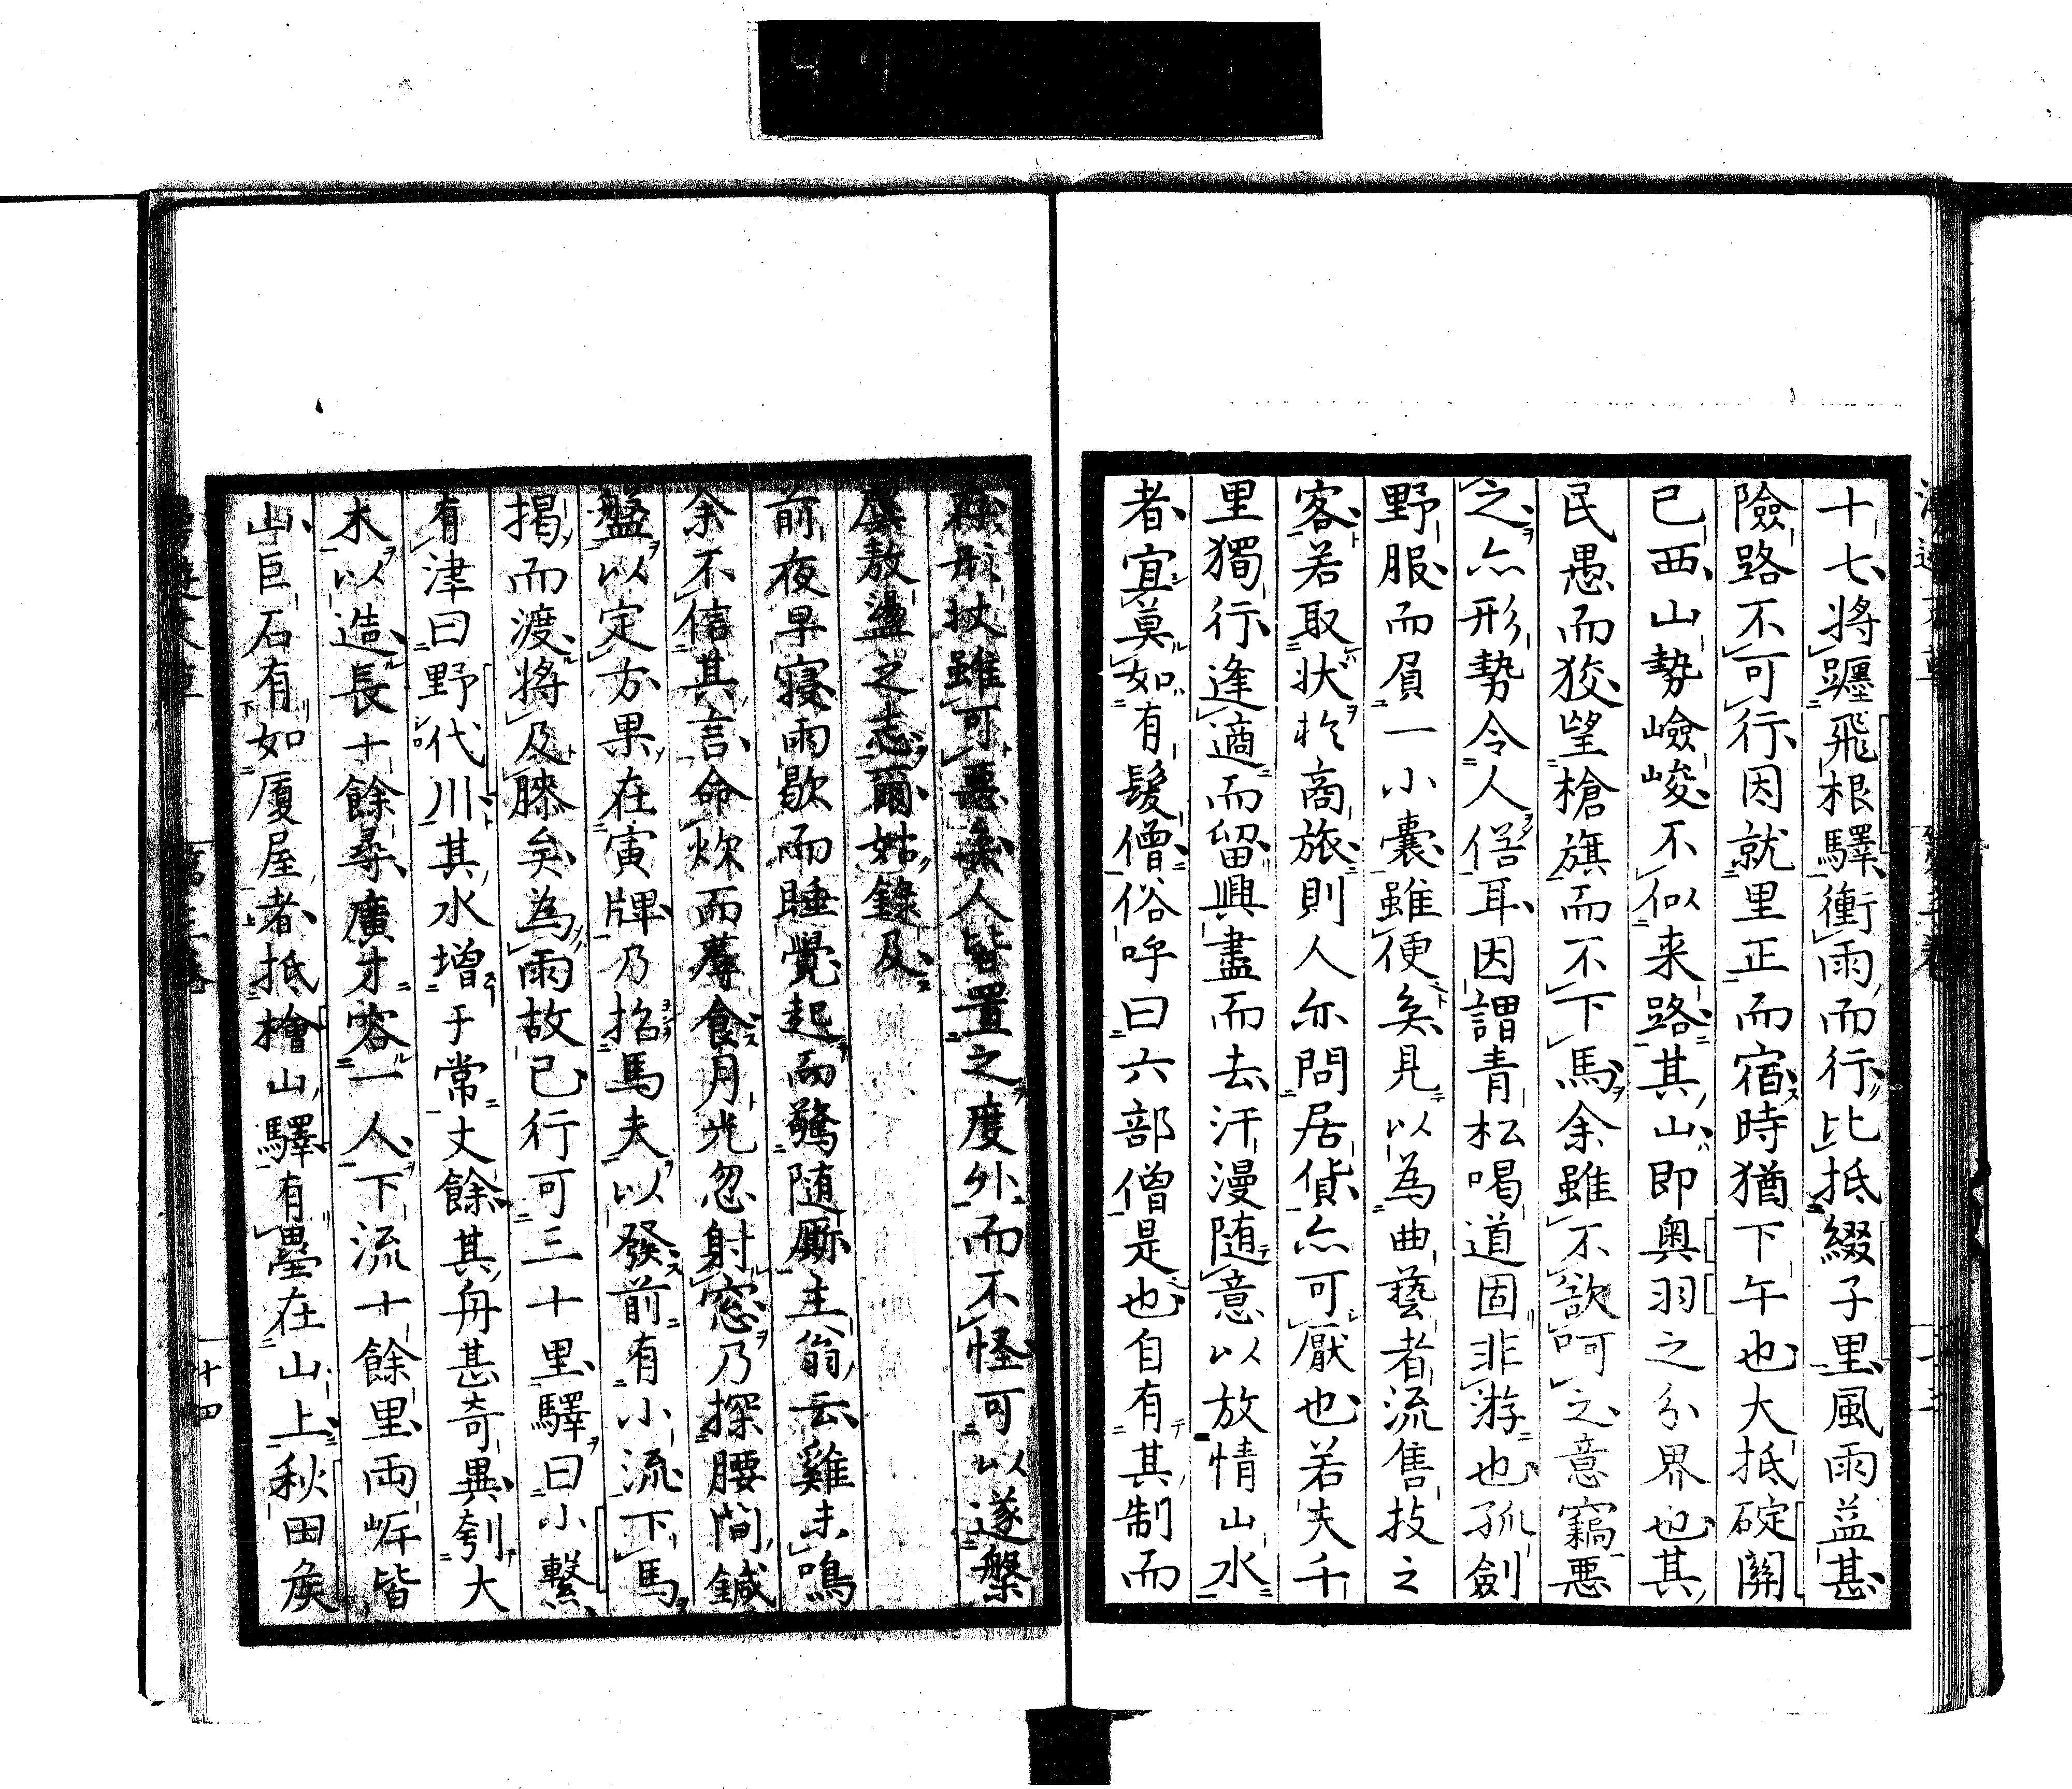 十七將躔飛根驛衝雨而行比抵綴子里風雨益甚
險路不可行因就里正而宿時猶下午也大抵碇關
已西山勢嶮峻不似来路其山即奥羽之分界也其
民愚而狡望槍旗而不下馬余雖不欲呵之意竊悪
之亦形勢令人傜耳因謂青松喝道固非游也孤劍
野服而負一小囊雖便矣見以為曲藝者流售技之
客若取状於商旅則人亦問居貨亦可厭也若夫千
里獨行逢適而留興盡而去汗漫随意以放情山水
者宜莫如有髮僧俗呼曰六部僧是也自有其制而
杖雖可惡矣人皆置之度外而不怪可以遂槃
敖盪之志爾姑錄及
前夜早寝雨歇而睡覺起而驚随厮主翁云雞未鳴
余不信其言命炊而蓐食月光忽射窓乃探腰間鍼
盤以定方果在寅牌乃搯馬夫以發前有小流下馬
揭而渡將及膝矣為雨故已行可三十里驛曰小繫
有津曰野代川其水增于常丈餘其舟甚奇異刳大
木以造長十餘尋廣才容一人下流十餘里両岸皆
山巨石有如厦屋者抵檜山驛有壘在山上秋田矦
十四